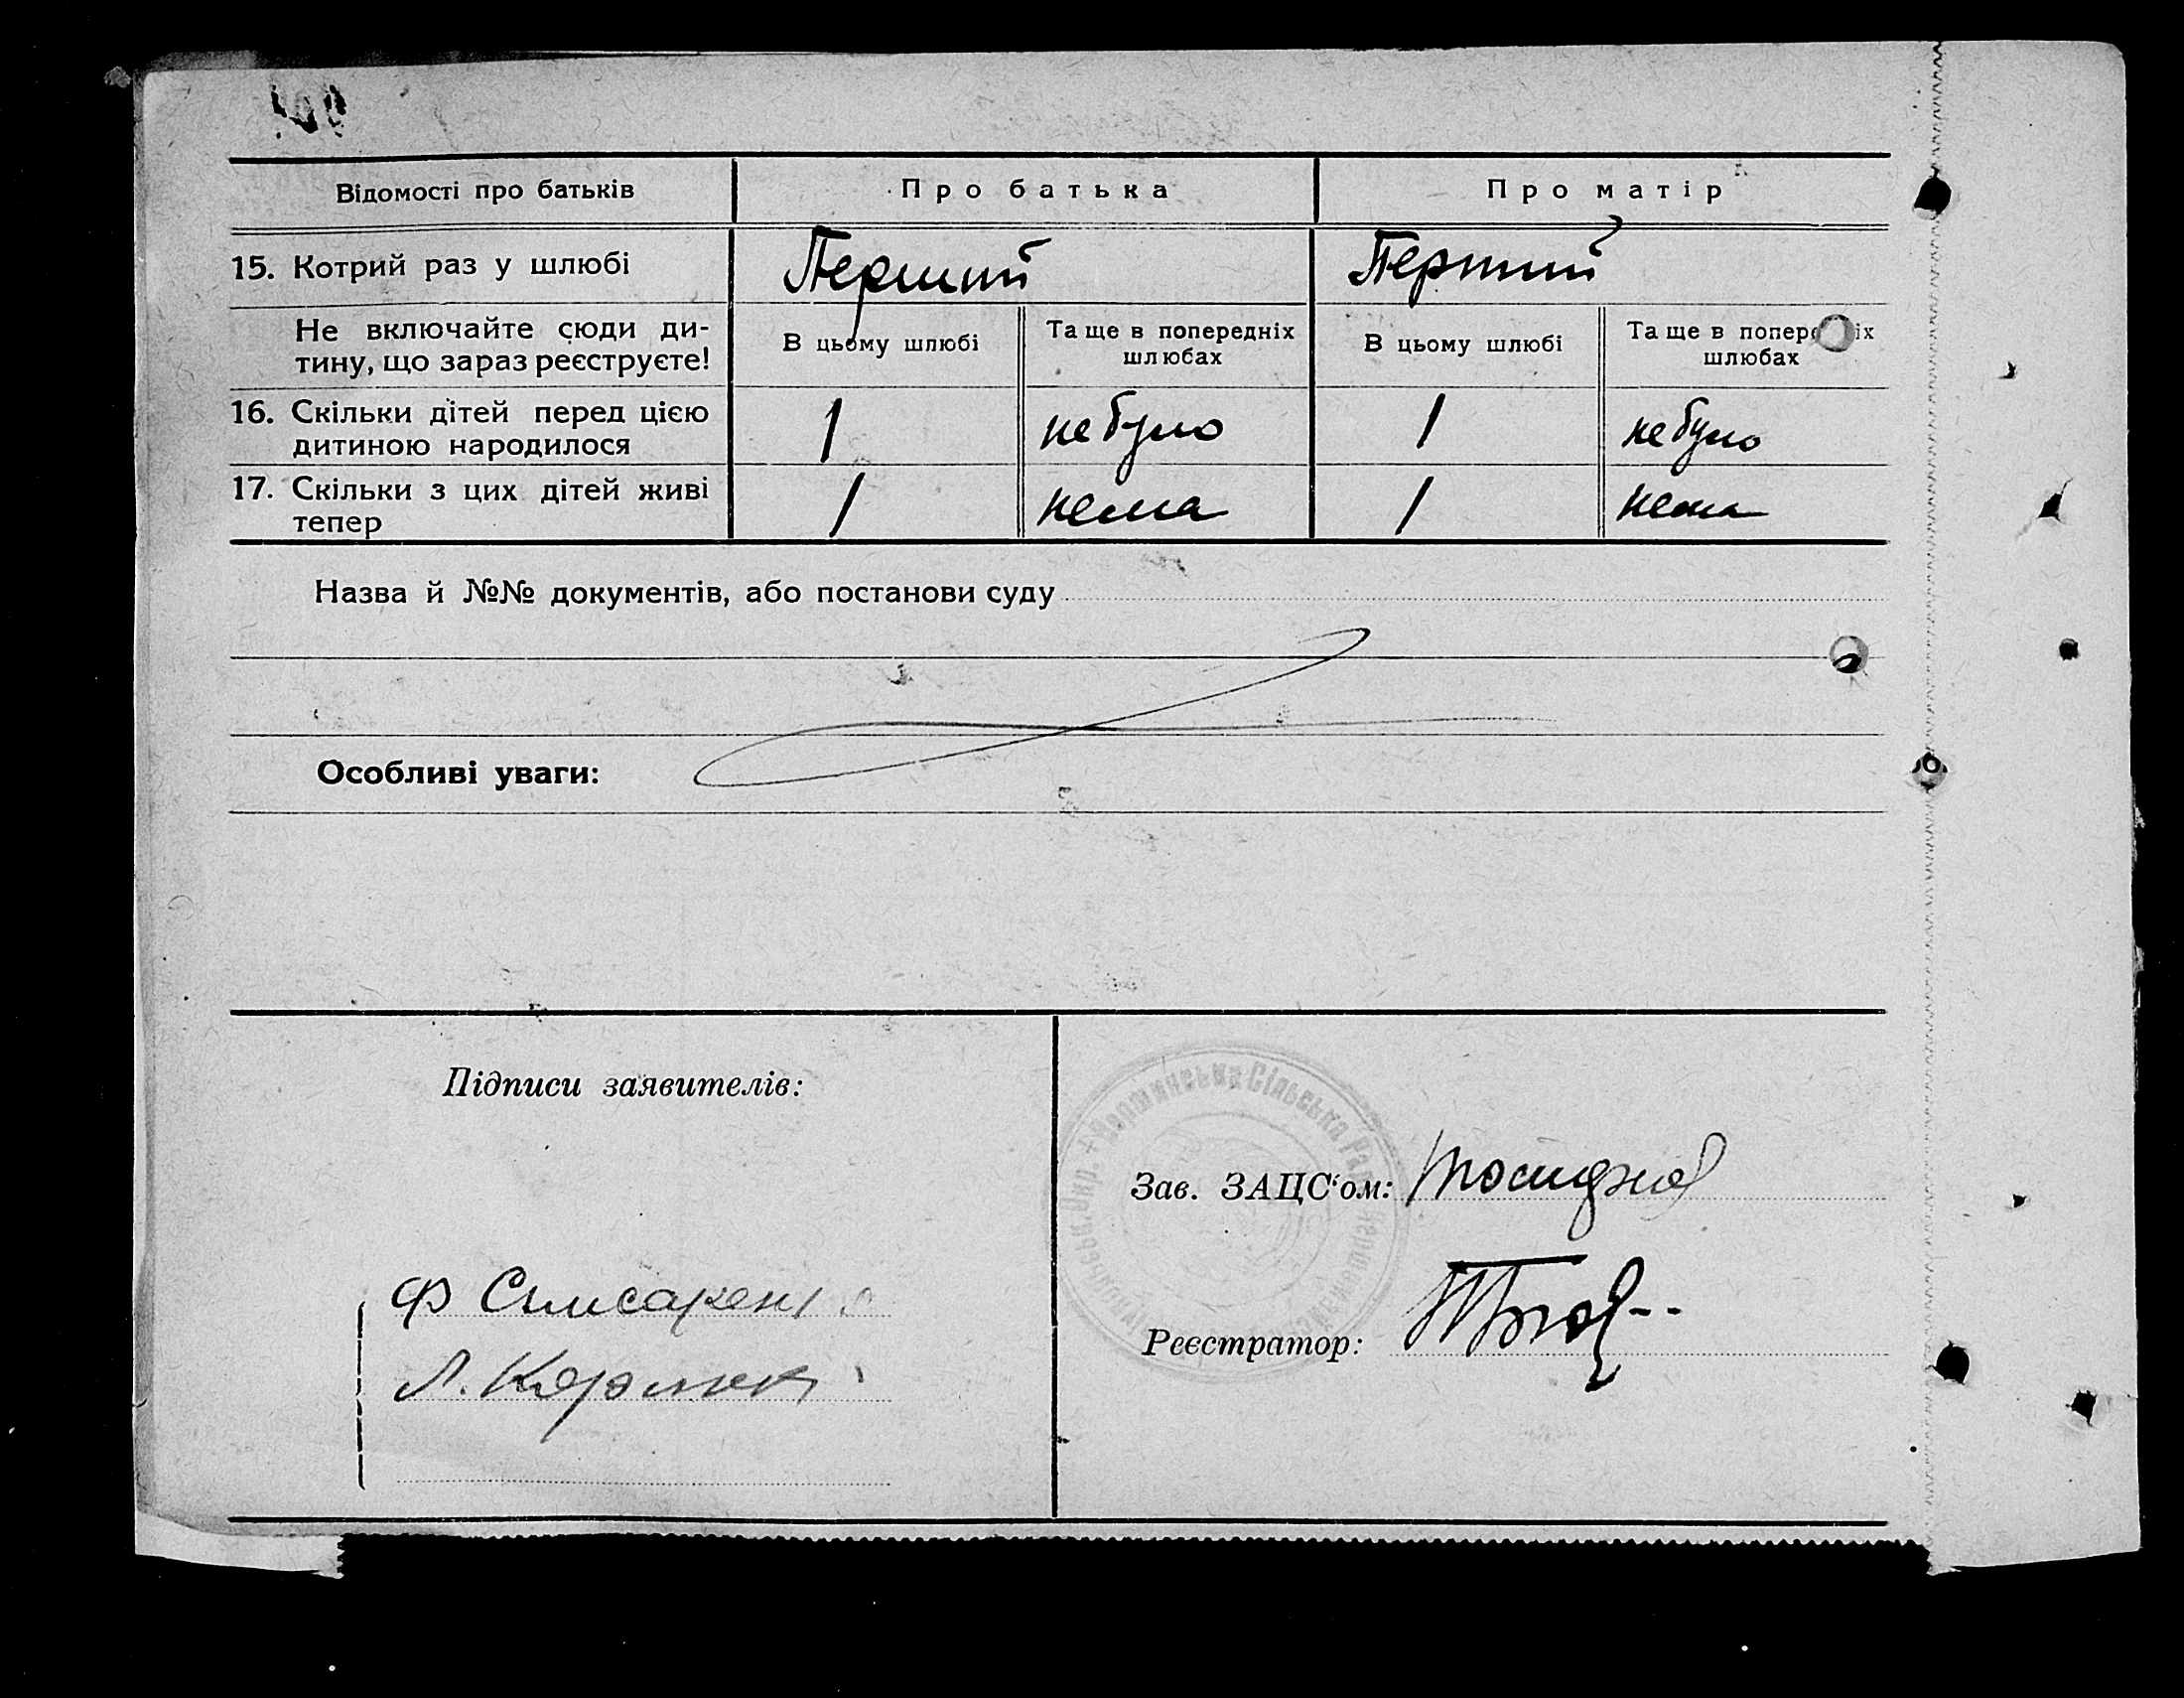 Відомості про батьків Про батька Про матір
15. Котрий раз у шлюбі Перший Перший
Не включайте сюди ди-
тину, що зараз реєструєте!
В цьому шлюбі
Та ще в попередніх
шлюбах
В цьому шлюбі
Та ще в попередніх
шлюбах
16. Скільки дітей перед цією
дитиною народилося
1 не було 1 не було
17. Скільки з цих дітей живі
тепер
1 нема 1 нема
Назва й №№ документів, або постанови суду
Особливі уваги:
Підписи заявителів:
Сільська Рад
Окр.
Зав. ЗАЦС'ом:
Ф Слисарен
Реєстратор:
Л.